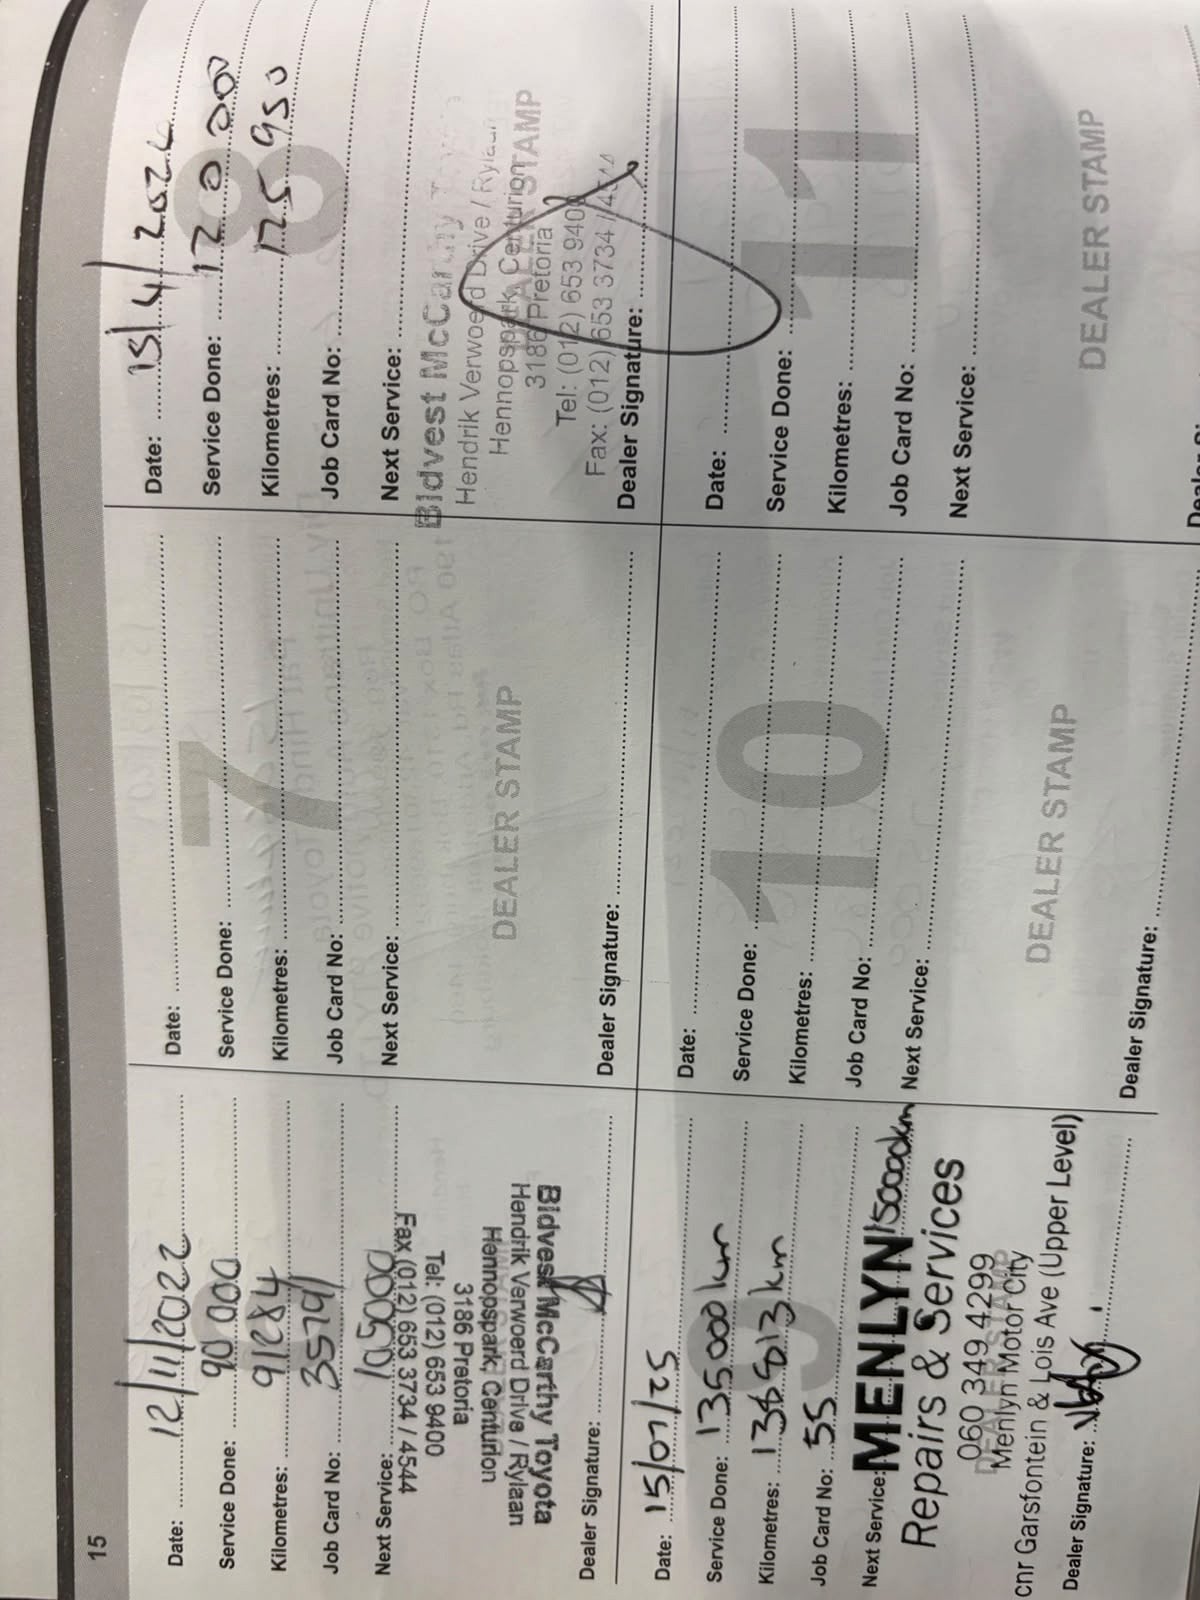 15
Date: 12/11/2022
Service Done: 90 000
Kilometres: 91284
Job Card No: 35791
Next Service: 105000
Fax (012) 653 3734 / 4544
Tel: (012) 653 9400
3186 Pretoria
Hennopspark, Centurion
Hendrik Verwoerd Drive / Rylaan
Bidvest McCarthy Toyota
Dealer Signature:
7
Date:
Service Done:
Kilometres:
Job Card No:
Next Service:
DEALER STAMP
Dealer Signature:
8
Date: 15/4/202
Service Done: 120 000
Kilometres: 125 950
Job Card No:
Next Service:
Bidvest McCarthy
Hendrik Verwoerd Drive / Rylaan
Hennopspark, Centurion
DEALER STAMP
3186 Pretoria
Tel: (012) 653 9400
Fax: (012) 653 3734 / 4544
Dealer Signature:
9
Date: 15/07/25
Service Done: 135 000 km
Kilometres: 136 813 km
Job Card No: 55
Next Service: 150000km
MENLYN
Repairs & Services
060 349 4299
DEALER STAMP
Menlyn Motor City
Cnr Garsfontein & Lois Ave (Upper Level)
Dealer Signature:
10
Date:
Service Done:
Kilometres:
Job Card No:
Next Service:
DEALER STAMP
Dealer Signature:
11
Date:
Service Done:
Kilometres:
Job Card No:
Next Service:
DEALER STAMP